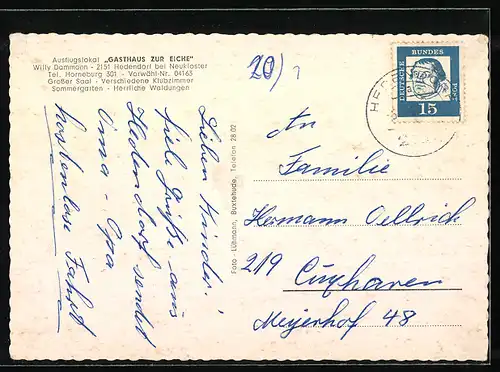 Ausflugslokal „GASTHAUS ZUR EICHE"
Willy Dammann - 2151 Hedendorf bei Neukloster
Tel. Horneburg 301 - Vorwähl-Nr. 04163
Großer Saal - Verschiedene Klubzimmer
Sommergarten - Herrliche Waldungen
Lieben Kinder!
viele Grüße aus
Hedendorf sendet
Oma - Opa
Foto - Lühmann, Buxtehude, Telefon 28 02
20)
DEUTSCHE BUNDES POST
15
An
Familie
Hermann Oellrich
219 Cuxhaven
Meyerhof 48